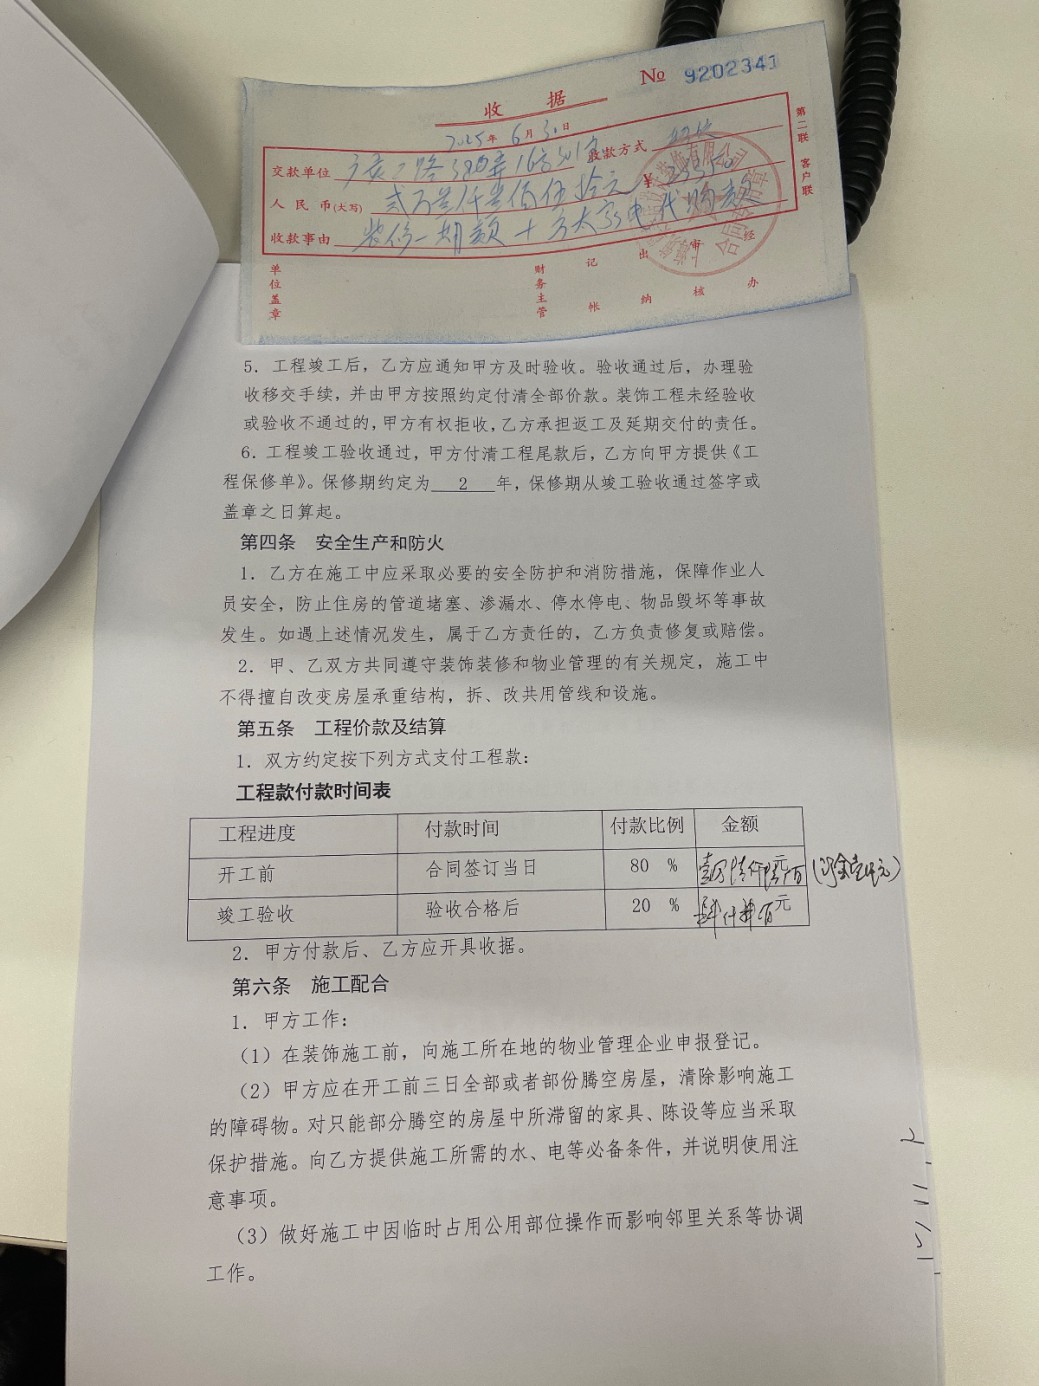 № 9202341
收 据
2025年 6月 30日
交款单位 路 弄16号501室 收款方式
人民币(大写) 贰万叁仟叁佰伍拾元 ¥ 23350
收款事由 装修一期款+方太家电代购款
第二联 客户联
单位盖章 财务主管 记帐 出纳 审核 经办
合同专用章
5. 工程竣工后，乙方应通知甲方及时验收。验收通过后，办理验
收移交手续，并由甲方按照约定付清全部价款。装饰工程未经验收
或验收不通过的，甲方有权拒收，乙方承担返工及延期交付的责任。
6. 工程竣工验收通过，甲方付清工程尾款后，乙方向甲方提供《工
程保修单》。保修期约定为 2 年，保修期从竣工验收通过签字或
盖章之日算起。
第四条 安全生产和防火
1. 乙方在施工中应采取必要的安全防护和消防措施，保障作业人
员安全，防止住房的管道堵塞、渗漏水、停水停电、物品毁坏等事故
发生。如遇上述情况发生，属于乙方责任的，乙方负责修复或赔偿。
2. 甲、乙双方共同遵守装饰装修和物业管理的有关规定，施工中
不得擅自改变房屋承重结构，拆、改共用管线和设施。
第五条 工程价款及结算
1. 双方约定按下列方式支付工程款：
工程款付款时间表
工程进度 付款时间 付款比例 金额
开工前 合同签订当日 80 % 壹万陆仟 佰元 (订金壹仟元)
竣工验收 验收合格后 20 % 肆仟 佰元
2. 甲方付款后、乙方应开具收据。
第六条 施工配合
1. 甲方工作：
（1）在装饰施工前，向施工所在地的物业管理企业申报登记。
（2）甲方应在开工前三日全部或者部份腾空房屋，清除影响施工
的障碍物。对只能部分腾空的房屋中所滞留的家具、陈设等应当采取
保护措施。向乙方提供施工所需的水、电等必备条件，并说明使用注
意事项。
（3）做好施工中因临时占用公用部位操作而影响邻里关系等协调
工作。